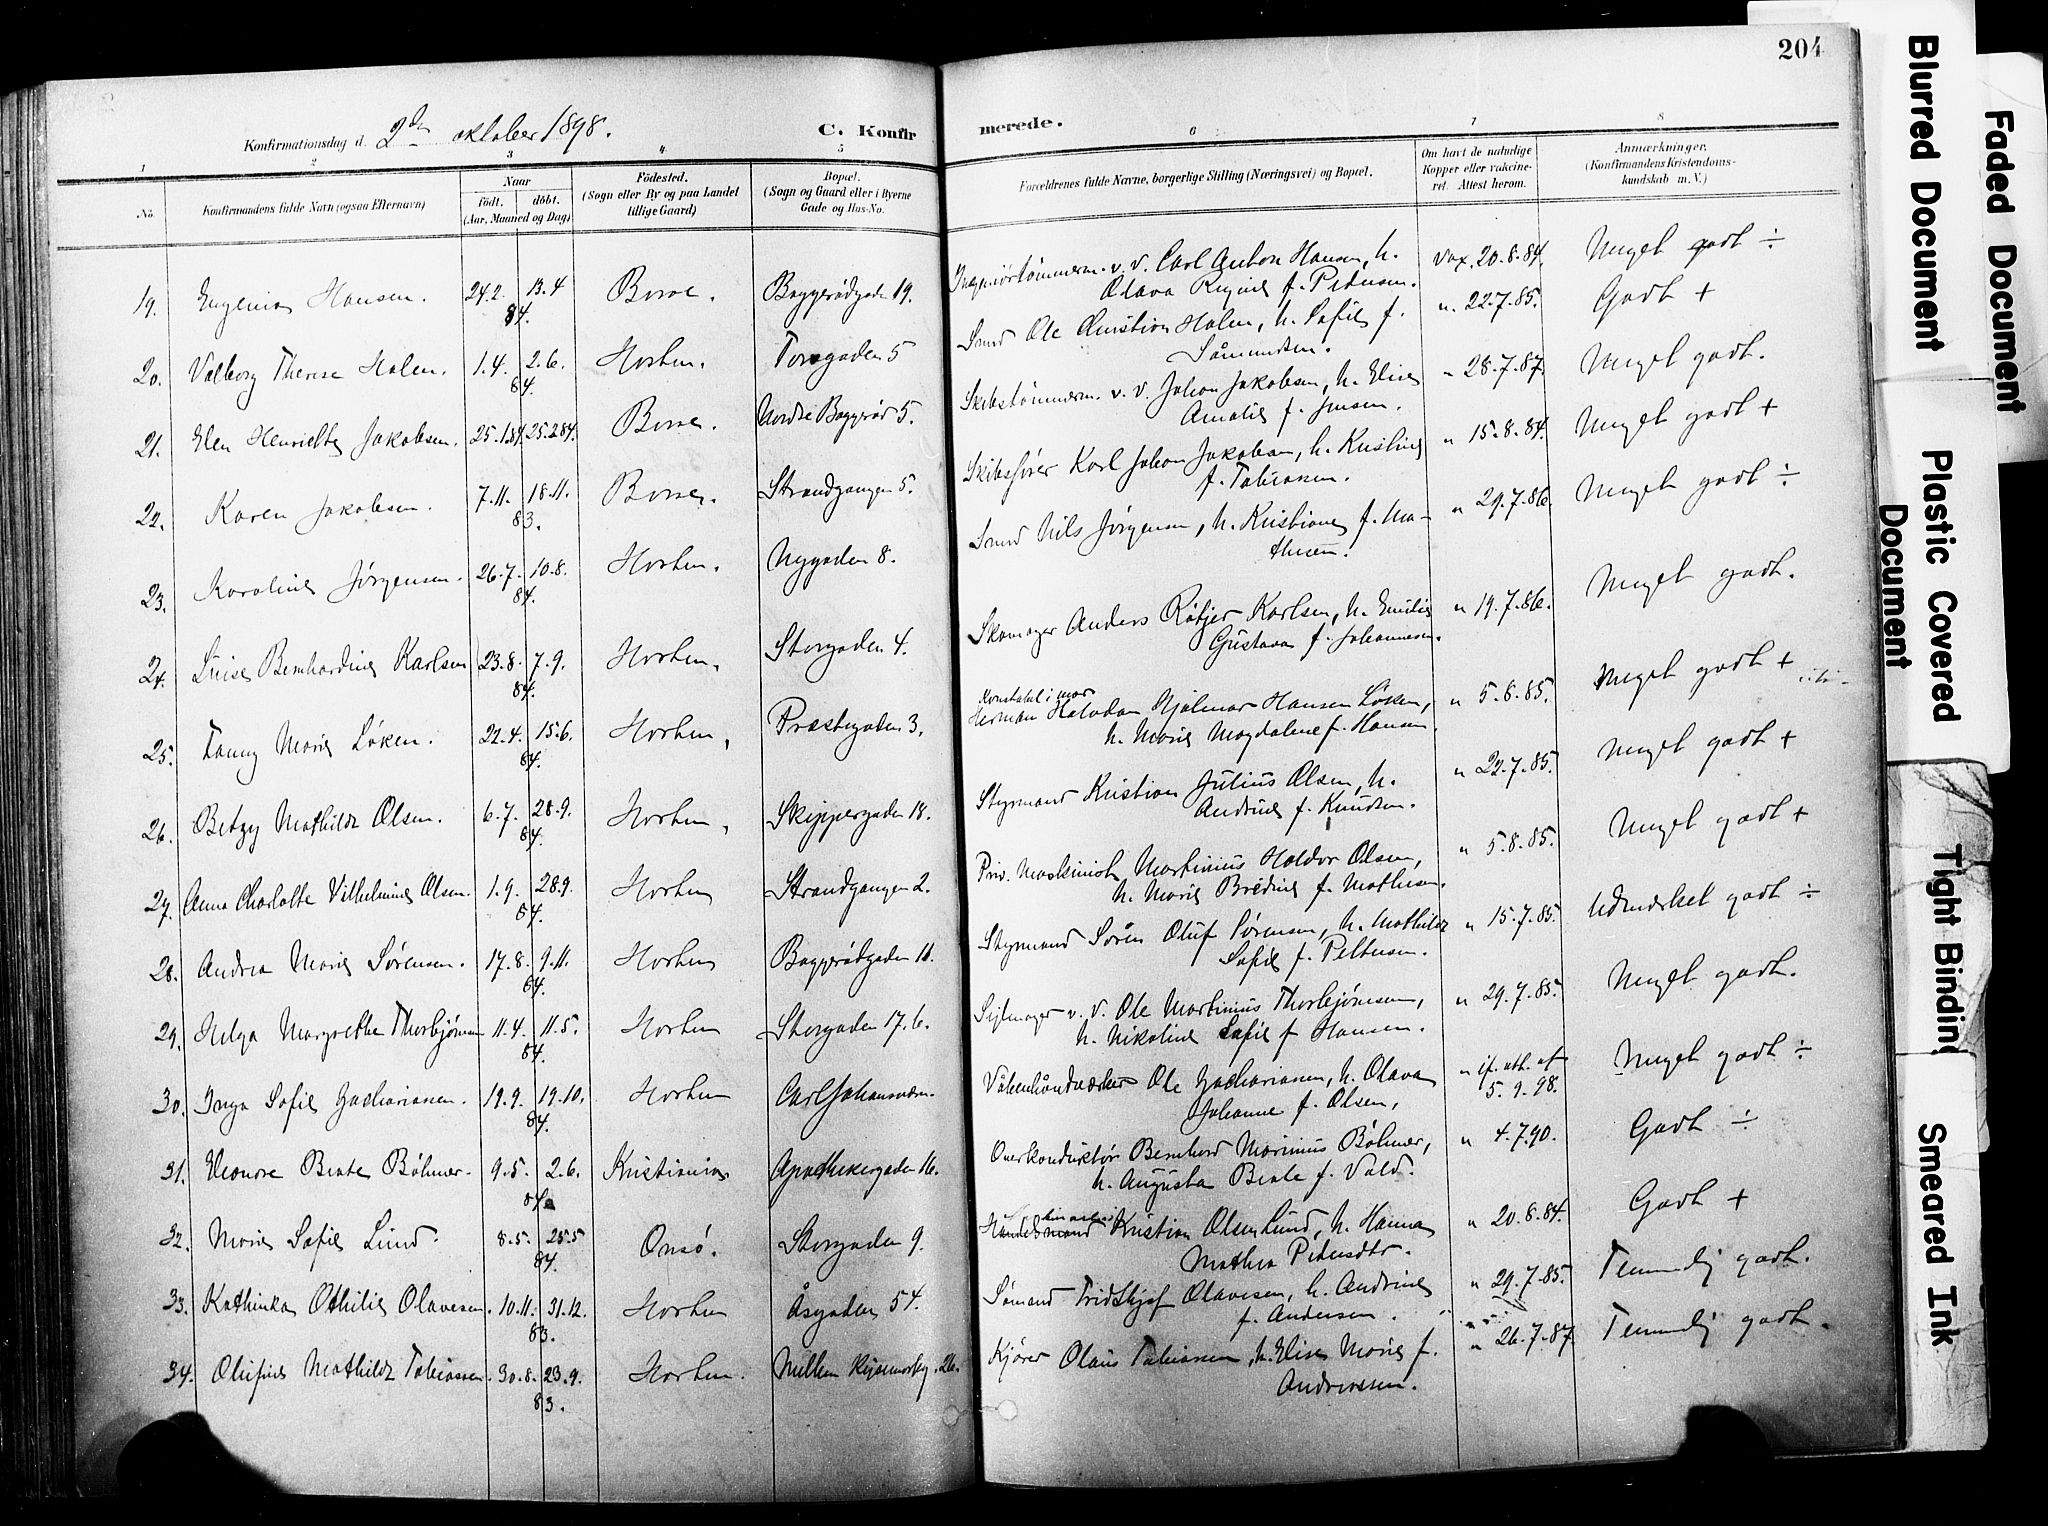 204
Konfirmationsdag d. 2den oktober 1898.
C. Konfirmerede.
1 2 3 4. 5 6 7 8
No.
Konfirmandens fulde Navn (ogsaa Efternavn)
Naar
født. døbt.
(Aar, Maaned og Dag)
Fødested.
(Sogn eller By og paa Landet
tillige Gaard)
Bopæl.
(Sogn og Gaard eller i Byerne
Gade og Hus-No.
Forældrenes fulde Navne, borgerlige Stilling (Næringsvei) og Bopæl.
Om havt de naturlige
Kopper eller vakcine-
ret. Attest herom.
Anmærkninger.
(Konfirmandens Kristendoms-
kundskab m. V.)
19. Eugenia Hansen. 24.2. 13.4 84. Borre. Baggerødgaden 19. Ingeniørtømmerm. v. V. Carl Anton Hansen, h. Olava Regine f. Pedersen. Vax. 20.8.84. Meget godt ÷
20. Valborg Therese Holen. 1.4. 2.6. 84. Horten. Torvgaden 5 Smed Ole Christian Holen, h. Sofie f. Såmundsen. " 22.7.85. Godt +
21. Elen Henriette Jakobsen. 25.1.84. 25.2.84. Borre. Nordre Baggerød 5. Skibstømmerm. v. V. Johan Jakobsen, h. Elise Amalie f. Jensen. " 28.7.87. Meget godt.
22. Karen Jakobsen. 7.11. 18.11. 83. Borre. Strandgangen 5. Skibsfører Karl Johan Jakobsen, h. Kristine f. Tobiasen. " 15.8.84. Meget godt +
23. Karoline Jørgensen. 26.7. 10.8. 84. Horten. Nygaden 8. Smed Nils Jørgensen, h. Kristiane f. Mathisen. " 29.7.86. Meget godt ÷
24. Luise Bernhardine Karlsen 23.8. 7.9. 84. Horten. Storgaden 4. Skomager Anders Røtjer Karlsen, h. Emilie Gustava f. Johannesen. " 19.7.86. Meget godt.
25. Fanny Marie Løken. 22.4. 15.6. 84. Horten, Præstegaden 3. Konstabel i mar Herman Halvdan Hjalmar Hansen Løken, h. Marie Magdalene f. Hansen " 5.8.85. Meget godt +
26. Betzy Mathilde Olsen. 6.7. 28.9. 84. Horten, Skippergaden 18. Styrmand Kristian Julius Olsen, h. Andrine f. Knudsen. " 22.7.85. Meget godt +
27. Anna Charlotte Vilhelmine Olsen. 1.9. 28.9. 84. Horten Strandgangen 2. Priv. Maskinist Martinius Haldor Olsen, h. Marie Bredine f. Mathisen. " 5.8.85. Meget godt +
28. Andrea Marie Sørensen. 17.8. 9.11. 84. Horten Baggerødgaden 11. Styrmand Søren Oluf Sørensen, h. Mathilde Sofie f. Pettersen. " 15.7.85. Udmærket godt ÷
29. Helga Margrethe Thorbjørnsen 11.4. 11.5. 84. Horten Storgaden 17.b. Sejlmager v. V. Ole Martinius Thorbjørnsen, h. Nikoline Sofie f Hansen. " 29.7.85. Meget godt.
30. Inga Sofie Zachariasen. 19.9. 19.10. 84. Horten Carl Johansveien. Våbenhåndværker Ole Zachariasen, h. Olava Johanne f. Olsen, " if. att. af 5.9.98. Meget godt ÷
31. Eleonore Beate Böhmer. 9.5. 2.6. 84. Kristiania Apothekergaden 16. Overkonduktør Bernhard Marinius Böhmer, h. Augusta Beate f. Vold. " 4.7.90. Godt ÷
32. Marie Sofie Lund. 8.5. 25.5 84. Onsö. Storgaden 9. Handelsmand Kristian Olsen Lund, h. Hanna Mathea Pedersdtr. " 20.8.84. Godt +
33. Kathinka Othilie Olavesen. 10.11. 31.12. 83. Horten Åsgaden 54. Sømand Fridthjof Olavesen, h. Andrine f. Andersen. " 29.7.85. Temmelig godt.
34. Olufine Mathilde Tobiassen. 30.8. 23.9. 83. Horten. Mellem Rejsmorby 26. Kjører Olaus Tobiassen, h. Elise Marie f. Andreassen. " 26.7.87. Temmelig godt.
Blurred Document
Faded Document
Plastic Covered Document
Tight Binding
Smeared Ink